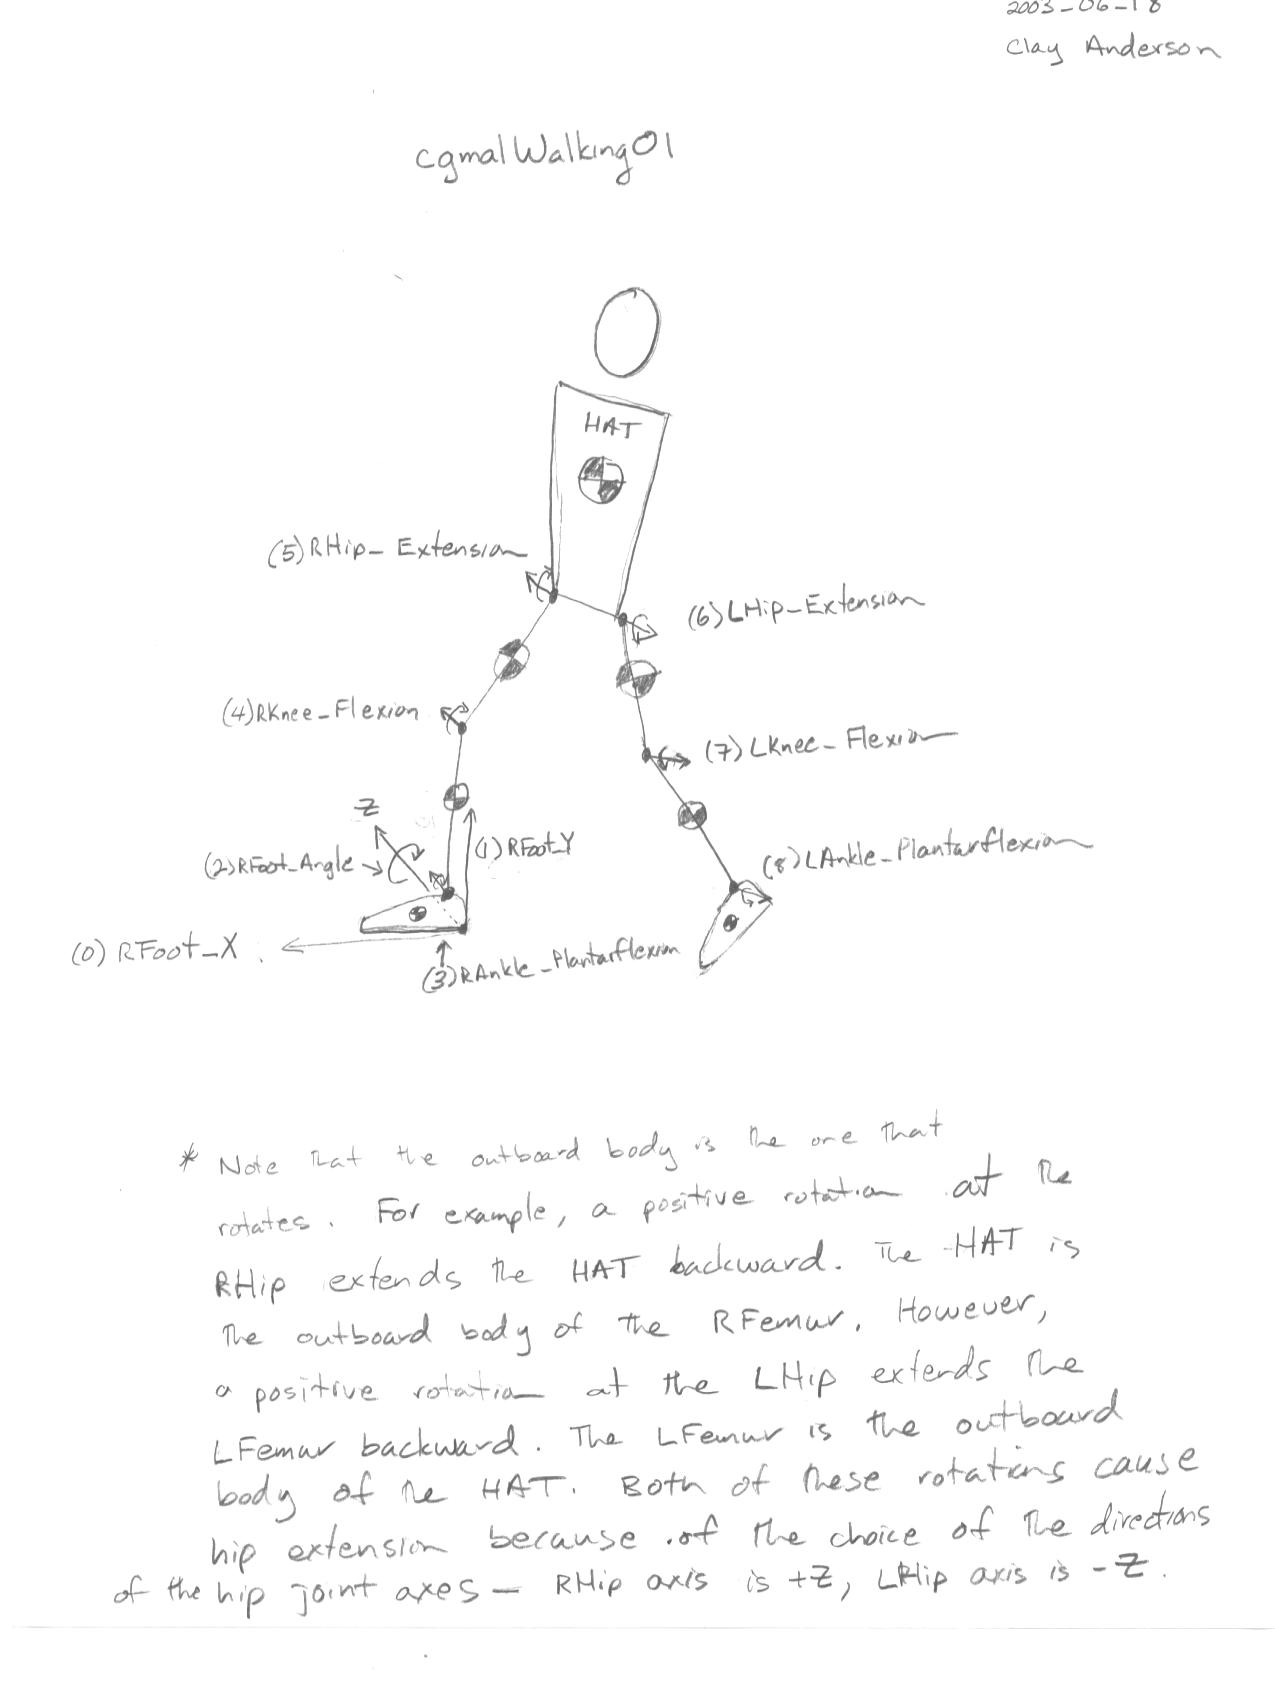 2003-06-18
Clay Anderson
cgmalWalking01
HAT
(5) RHip_ Extension
(6) LHip_Extension
(4) RKnee_Flexion
(7) LKnee_Flexion
Z
(1) RFoot_Y
(2) RFoot_Angle
(8) LAnkle_Plantarflexion
(0) RFoot_X
(3) RAnkle_Plantarflexion
* Note that the outboard body is the one that
rotates. For example, a positive rotation at the
RHip extends the HAT backward. The HAT is
the outboard body of the RFemur. However,
a positive rotation at the LHip extends the
LFemur backward. The LFemur is the outboard
body of the HAT. Both of these rotations cause
hip extension because of the choice of the directions
of the hip joint axes – RHip axis is +Z, LHip axis is -Z.